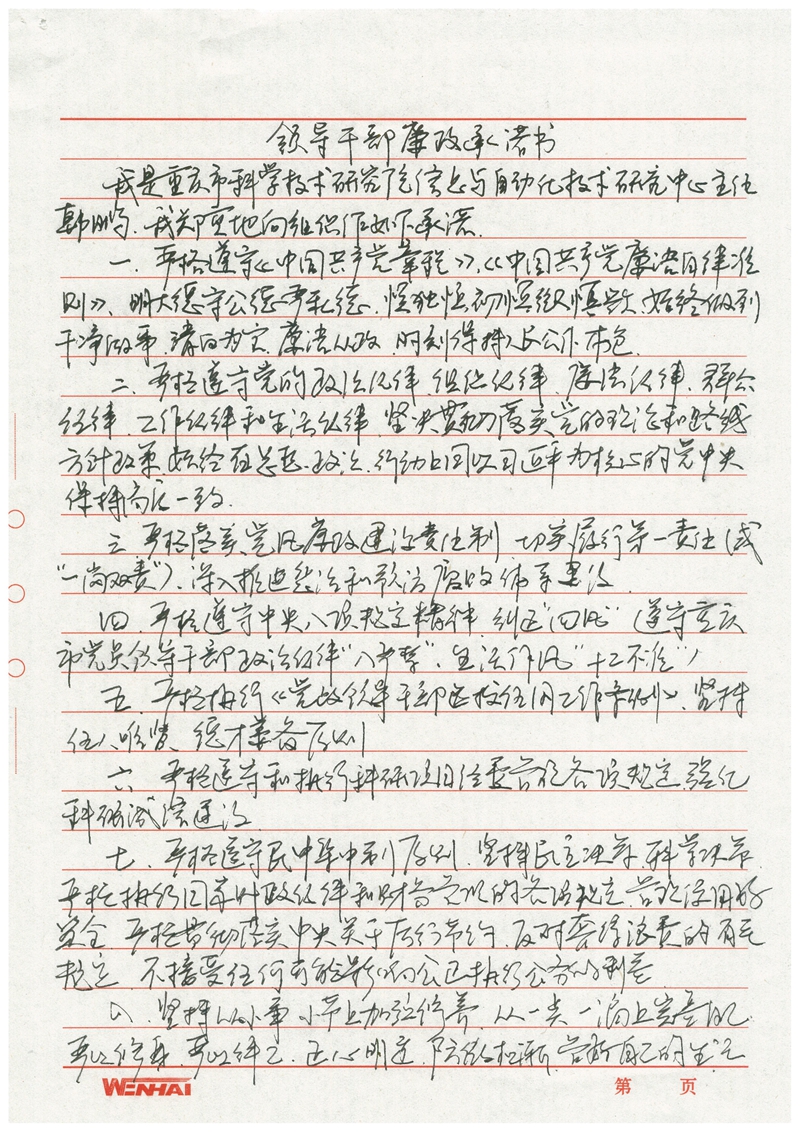 领导干部廉政承诺书
我是重庆市科学技术研究院信息与自动化技术研究中心主任
韩鹏,我郑重地向组织作如下承诺。
一、严格遵守《中国共产党章程》、《中国共产党廉洁自律准
则》,明大德守公德严私德,慎独慎初慎微慎欲,始终做到
干净做事,清白为官,廉洁从政,时刻保持人民公仆本色。
二、严格遵守党的政治纪律、组织纪律、廉洁纪律、群众
纪律、工作纪律和生活纪律,坚决贯彻落实党的理论和路线
方针政策,始终在思想、政治、行动上同以习近平为核心的党中央
保持高度一致。
三、严格落实党风廉政建设责任制,切实履行第一责任(或
"一岗双责"),深入推进惩治和预防腐败体系建设
四、严格遵守中央八项规定精神,纠正"四风",遵守重庆
市党员领导干部政治纪律"八严禁"、生活作风"十二不准"
五、严格执行《党政领导干部选拔任用工作条例》,坚持
任人唯贤、德才兼备原则
六、严格遵守和执行科研项目经费管理各项规定,强化
科研诚信建设
七、严格遵守民主集中制原则,坚持民主决策、科学决策,
严格执行国家财政纪律和财务管理的各项规定,管理使用好
资金,严格贯彻落实中央关于厉行节约、反对奢侈浪费的有关
规定,不接受任何有可能影响公正执行公务的利益
八、坚持从小事小节上加强修养,从一点一滴上完善自己
严以修身,严以律己,正心明道,防微杜渐,管好自己的生活
WENHAI
第 页